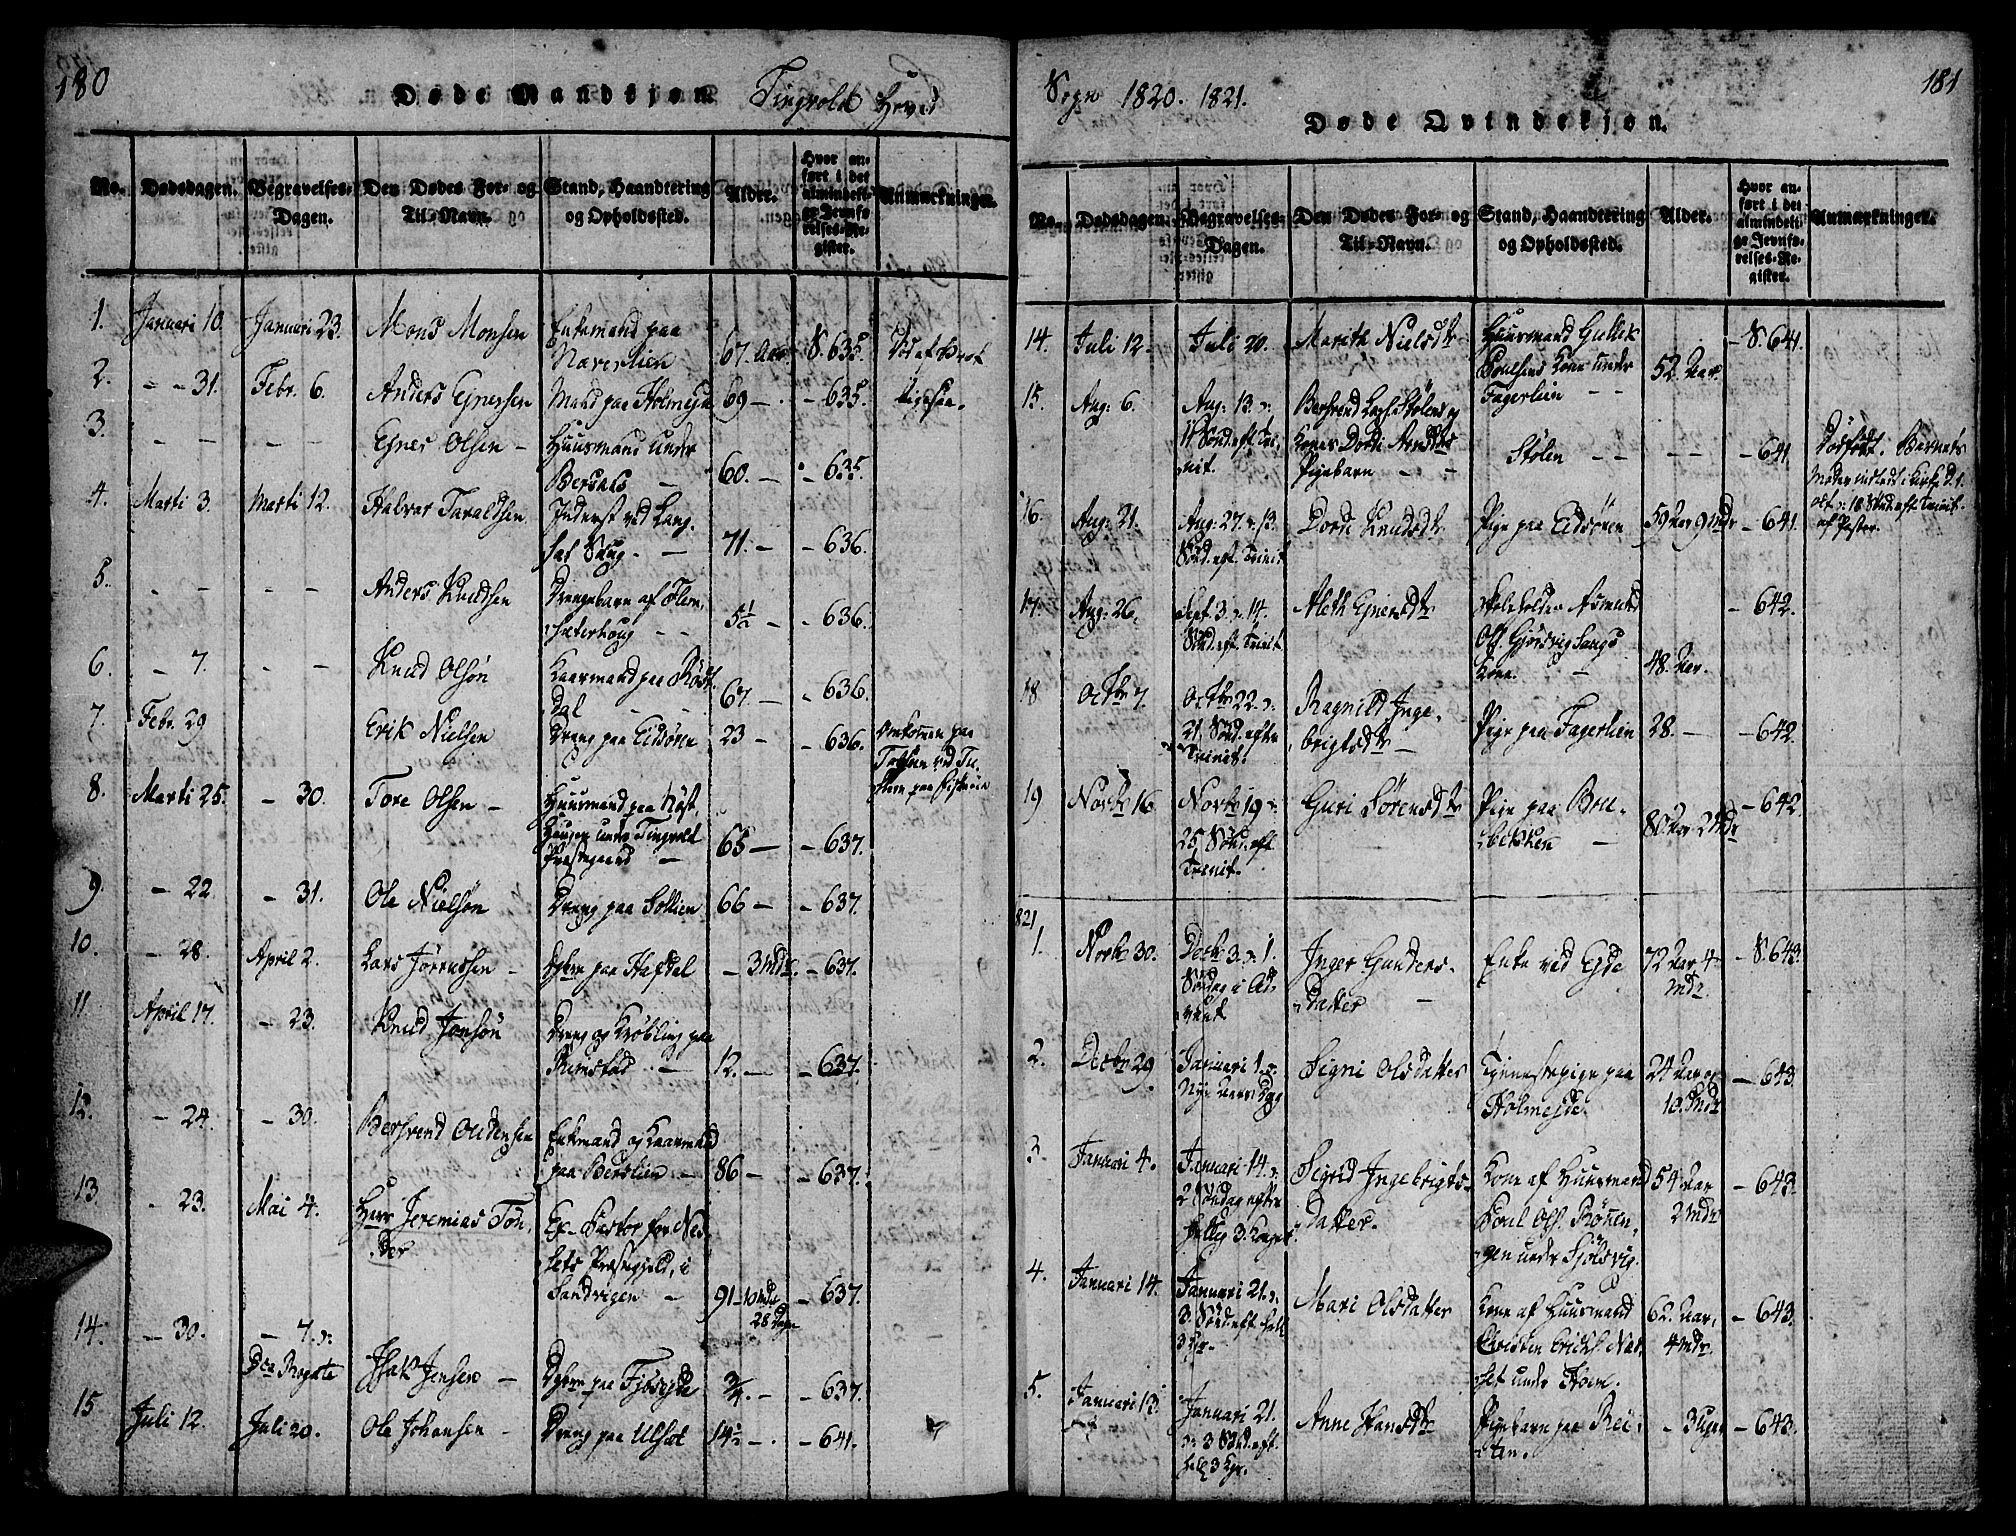 180
Døde Mandkjøn. Tingvold Hoved
No. Dødsdagen. Begravelses-Dagen. Den Dødes For- og Til-Navn. Stand, Haandtering og Opholdssted. Alder. Hvor anført i det almindelige Jevnførelses-Register. Anmærkninger.
1. Januari 10. Januari 23. Mons Monsen Enkemand paa
67. Aar S. 635.
2. - - 31. Febr. 6. Anders Ejnersen Mand paa Holmejde 69 - - 635.
3. - - - - Ejner Olsen - Huusmand under
Bersaas - 60. - - 635.
4. Marti 3. Marti 12. Halvor Taraldsen Inderst ved Lang-
71. - - 636.
5. - - - - Anders Knudsen Drengebarn af
5½ - - 636.
6. - 7. - - Knud Olsøn Kaarmand paa Röst-
Dal - 67. - - 636.
7. Febr. 29 Erik Nielsen Dreng paa Eidsören 23 - - 636. Omkommen paa
8. Marti 25. - 30. Tore Olsen - Huusmand paa Röst-
Haugen under Tingvold
Præstegaard - 65 - - 637.
9. - 22. - 31. Ole Nielsøn Dreng paa Sollien 66 - - 637.
10. - 28. April 2. Lars Jørensen - Dgbrn paa Hafdal - 3 Mdr. - 637.
11 April 17. - 23. Knud Jonsøn Dreng og Krøbling paa
Rimstad - 12. - - 637.
12. - 24. - 30. Bersvend Oudensen Enkemand og Kaarmand
paa Berslien - 86 - - 637.
13. - 23. Mai 4. Herr Jeremias Ton-
der Ex-Pastor for Næs-
sets Præstegjeld, i
Sandvigen - 91 - 10 Mdr
28 Dage - 637.
14. - 30. - 7. ɔ:
Dca Rogate Isak Jensen - Dgbrn paa Fjøsejde ¾. - - 637.
15 Juli 12. Juli 20. Ole Johansen - Dreng paa Ulset 14½ - - 641.
Sogn 1820. 1821. 181
Døde Qvindekjøn.
No. Dødsdagen. Begravelses-Dagen. Den Dødes For- og Til-Navn. Stand, Haandtering og Opholdssted. Alder. Hvor anført i det almindelige Jevnførelses-Register. Anmærkninger.
14. Juli 12. Juli 20. Marith Nielsdtr Huusmand Gullik
Poulsens Kone under
Fagerlien - - 52 Aar. - S. 641.
15. Aug: 6. Aug: 13. ɔ:
11 Sönd. eft. Tri-
nit. Bersvend Lars: Stölens og
Kones Dordi Arndtdtrs
Pigebarn - - Stölen - - - - - 641. Dødfødt. Barnets
Moder indledt i Kirke D. 1
Oct ɔ: 18 Sönd. eft Trinit.
af Pastor.
16. Aug: 21. Aug: 27. ɔ: 13.
Sönd. eft. Trinit Dordi Knudsdtr Pige paa Eidsören 59 Aar 9 Mdr - 641.
17 Aug: 26. Sept. 3. ɔ: 14.
Sönd. eft. Trinit Aleth Ejnersdtr Skoleholder Asmund
Ols. Gjörsvighaugs
Kone. - 48. Aar. - 642.
18 Octbr 7. Octbr 22. ɔ:
21. Sönd. efter
Trinit. Ragnild Inge-
brigtsdtr - Pige paa Fagerlien 28. - - 642.
19 Novbr 16 Novbr 19 ɔ:
25 Sönd. eft
Trinit. Guri Sörensdtr Pige paa Bru-
bekken - 80 Aar 2 Mdr - 642.
821
1. Novbr 30. Decbr 3. ɔ: 1.
Söndag i Ad-
vent. Inger Gunders-
datter - Enke ved Ejde 72 Aar 4
Mdr. - S. 643.
2. Decbr 29. Januari 1. ɔ:
Nye Aars Dag Signi Olsdatter Tjenestepige paa
Holmejde. 24 Aar og
10. Mdr - 643.
3. Januari 4. Januari 14. ɔ:
2 Söndag efter
hellig 3. Konger Sigrid Ingebrigts-
Datter. Kone af Huusmand
Poul Ols. Rönen-
gen under Sjölsvig. 54 Aar
2 Mdr - 643.
4. Januari 14. Januari 21. ɔ:
3. Sönd. eft. hell.
3 Kgr. Mari Olsdatter Kone af Huusmand
Christen Erichs. Næs-
set under Hoem. 62. Aar,
4 Mdr. - 643.
5. Januari 13. Januari 21.
ɔ: 3 Sönd. eft.
hell. 3 Kgr. Anne Hansdtr Pigebarn paa Rei-
ten. - 3 Uger - 643.